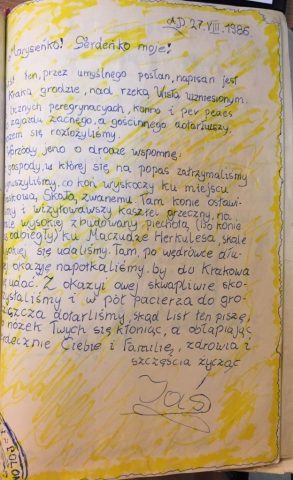 A.D. 27.VIII.1986
Maryseńko! Serdeńko moje!
List ten, przez umyślnego posłan, napisan jest
Kraka grodzie, nad rzeką Wisłą wzniesionym.
licznych peregrynacyach, konno i per pedes
zajazdu zacnego, a gościnnego dotarłszy,
się rozłożyliśmy.
jeno o drodze wspomnę:
gospody, w której się na popas zatrzymaliśmy
ruszyliśmy, co koń wyskoczy ku miejscu
Skała, zwanemu. Tam konie ostawi-
i wizytowawszy kasztel grzeczny, na
wysokiej zbudowany, piechotą (bo konie
odbiegły) ku Maczudze Herkulesa, skale
się udaliśmy. Tam, po wędrówce dłu-
okazyę napotkaliśmy, by do Krakowa
udać. Z okazyi owej skwapliwie sko-
rzystaliśmy i w pół pacierza do gro-
dotarliśmy, skąd list ten piszę,
nóżek Twych się kłoniąc, a obłapiając
serdecznie Ciebie i Familię, zdrowia i
szczęścia życząc
Jaś
POLON